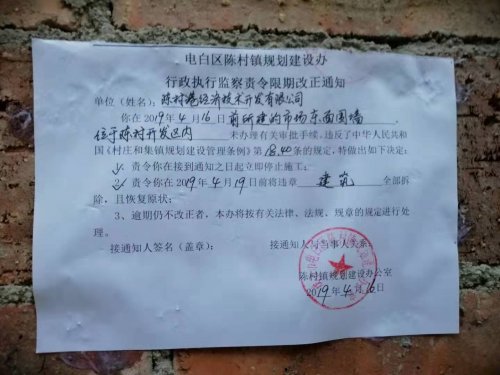 电白区陈村镇规划建设办
行政执行监察责令限期改正通知
单位(姓名):陈村港经济技术开发有限公司
你在2019年4月16日前所建的市场东面围墙
位于陈村开发区内 未办理有关审批手续,违反了中华人民共和
国《村庄和集镇规划建设管理条例》第18.40条的规定,特做出如下决定:
1、责令你在接到通知之日起立即停止施工;
2、责令你在2019年4月19日前将违章 建筑 全部拆
除,且恢复原状;
3、逾期仍不改正者,本办将按有关法律、法规、规章的规定进行处
理。
接通知人签名(盖章): 接通知人与当事人关系:
陈村镇规划建设办公室
2019年4月16日